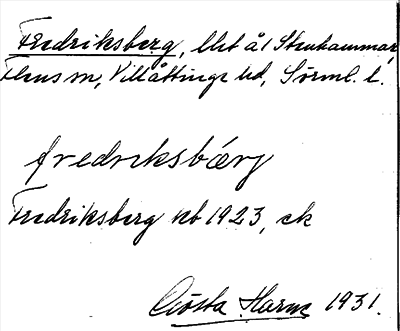 Fredriksberg, lht å 1 Stenhammar,
Flens sn, Villåttinge hd, Sörml. l.
fredriksbærj
Fredriksberg kb 1923, ek
Gösta Harm 1931.